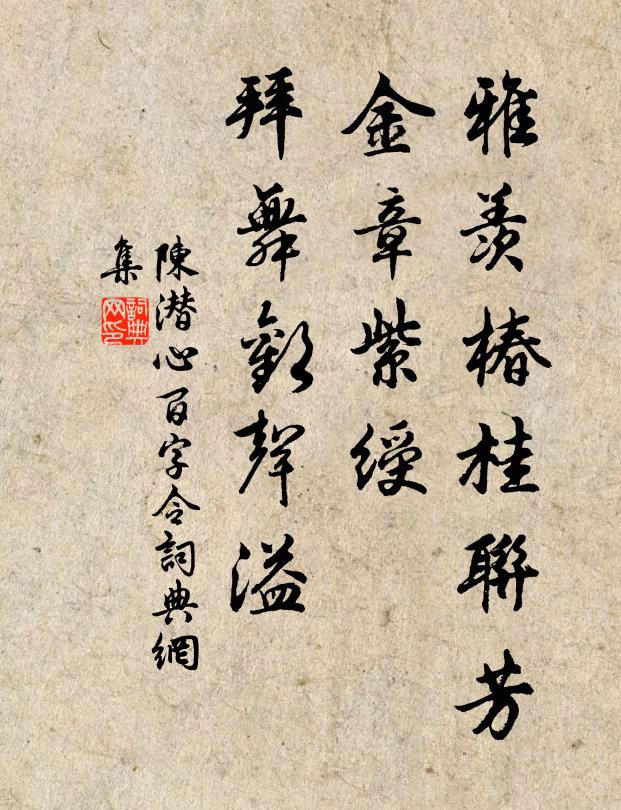 雅羨椿桂聯芳
金章紫綬
拜舞歡聲溢
陳潛心百字令詞典網
集
詞典网印